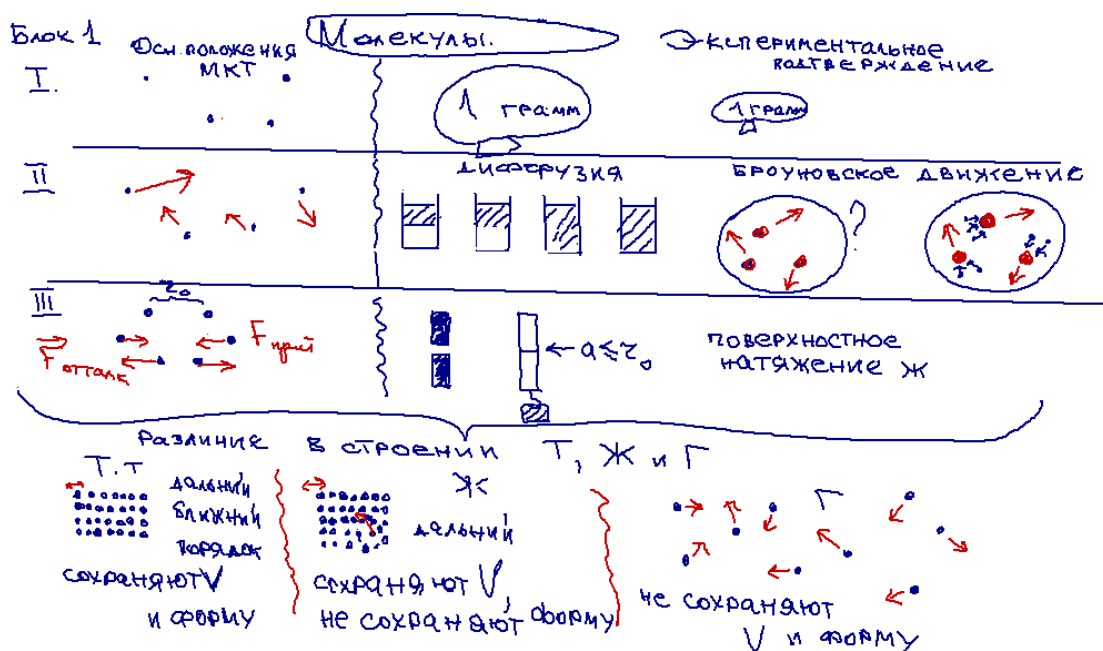 Блок 1
Осн. положения
МКТ
Молекулы.
Экспериментальное
подтверждение
I.
1 грамм
1 грамм
II
Диффузия
Броуновское движение
?
III
r₀
F притяж
F отталк
a ≤ r₀
поверхностное
натяжение Ж
Различие в строении Т, Ж и Г
Т.Т
дальний
ближний
порядок
сохраняют V
и форму
Ж
дальний
сохраняют V,
не сохраняют форму
Г
не сохраняют
V и форму